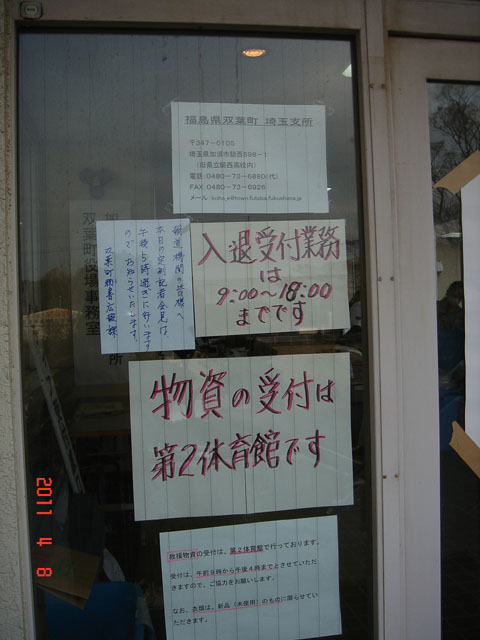 福島県双葉町 埼玉支所
〒347-0105
埼玉県加須市騎西598-1
(旧県立騎西高校内)
電話 0480-73-6880(代)
FAX 0480-73-6926
入退受付業務
は
9:00〜18:00
までです
報道機関の皆様へ
本日の定例記者会見は、
午後5時過ぎに行います
ので、お知らせいたします。
双葉町秘書広報課
双葉町役場事務室
物資の受付は
第2体育館です
救援物資の受付は、第2体育館で行っております。
受付は、午前9時から午後4時までとさせていただ
きますので、ご協力をお願いします。
なお、衣類は、新品(未使用)のものに限らせてい
ただきます。
2011 4 8